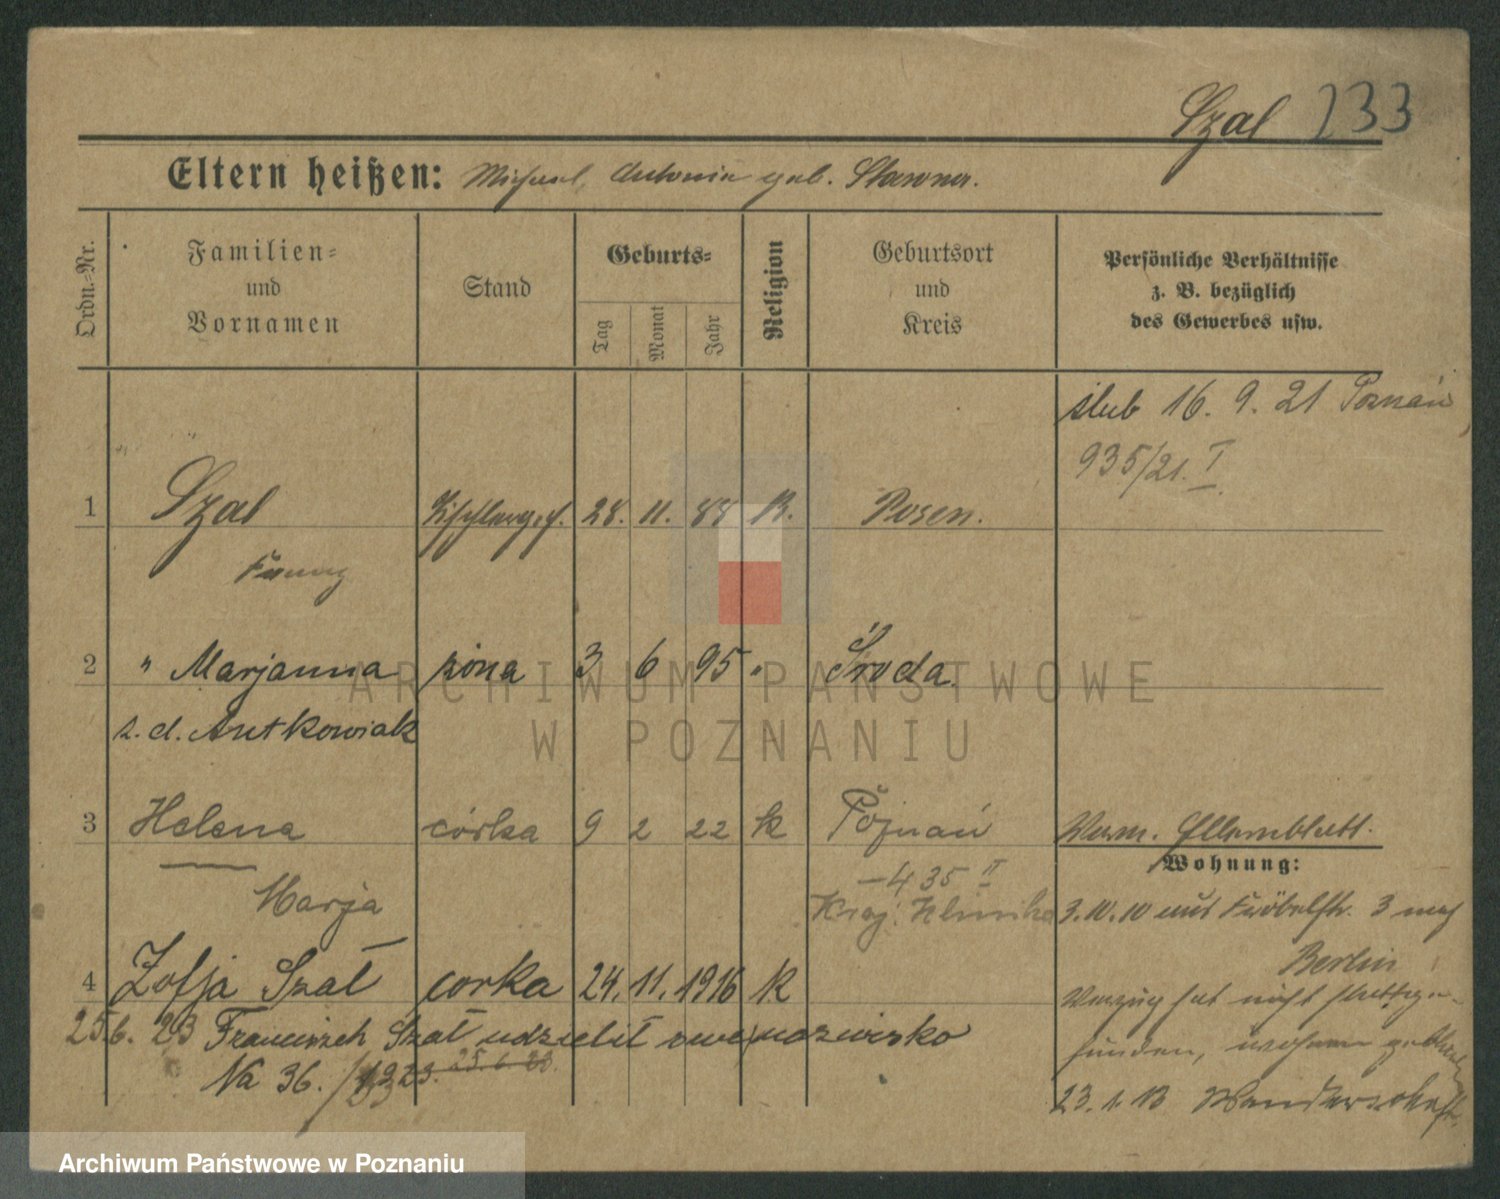 Szal 233
Eltern heißen: Michael, Antonia geb. Stawna.
Ordn.-Nr.
Familien-
und
Vornamen
Stand
Geburts-
Tag
Monat
Jahr
Religion
Geburtsort
und
Kreis
Persönliche Verhältnisse
z. B. bezüglich
des Gewerbes usw.
ślub 16. 9. 21 Poznań
935/21. I
1 Szal Tischlerges. 28. 11. 88 k. Posen.
Franz
2 " Marjanna żona 3 6 95 " Środa.
z. d. Antkowiak
3 Helena córka 9 2 22 k Poznań
Verm. Elternblatt.
Marja
435 II
Kraj. Klinika
Wohnung:
3.10.10 aus Fröbelstr. 3 nach
Berlin
4 Zofja Szal corka 24. 11. 1916 k
Verzug hat nicht stattge-
funden, wohnen
25.6. 23 Franciszek Szał udzielił swe nazwisko
Na 36. /1923. 25.6.23.
23.1.13 Wanderschaft.
ARCHIWUM PAŃSTWOWE
W POZNANIU
Archiwum Państwowe w Poznaniu